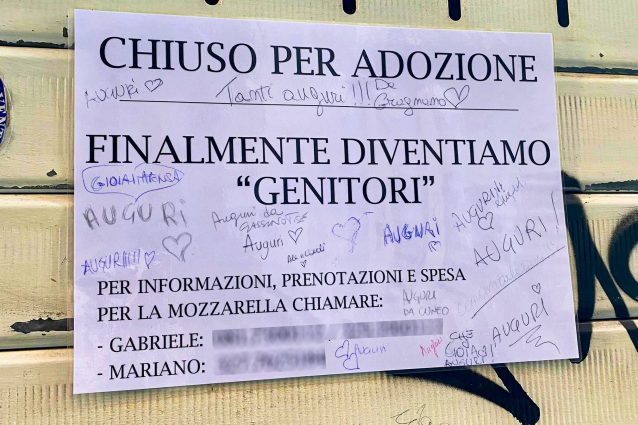 CHIUSO PER ADOZIONE
AUGURI
Tanti auguri !!! Da Gragnano
FINALMENTE DIVENTIAMO
GIOIA IMMENSA
"GENITORI"
AUGURI
Auguri da GASSINOTISE
Auguri
AUGURI
AUGURI
AUGURI!!!!!
AUGURI!
PER INFORMAZIONI, PRENOTAZIONI E SPESA
PER LA MOZZARELLA CHIAMARE:
AUGURI
DA CUNEO
- GABRIELE:
AUGURI
CHE
GIOIA!!
AUGURI
- MARIANO:
Auguri